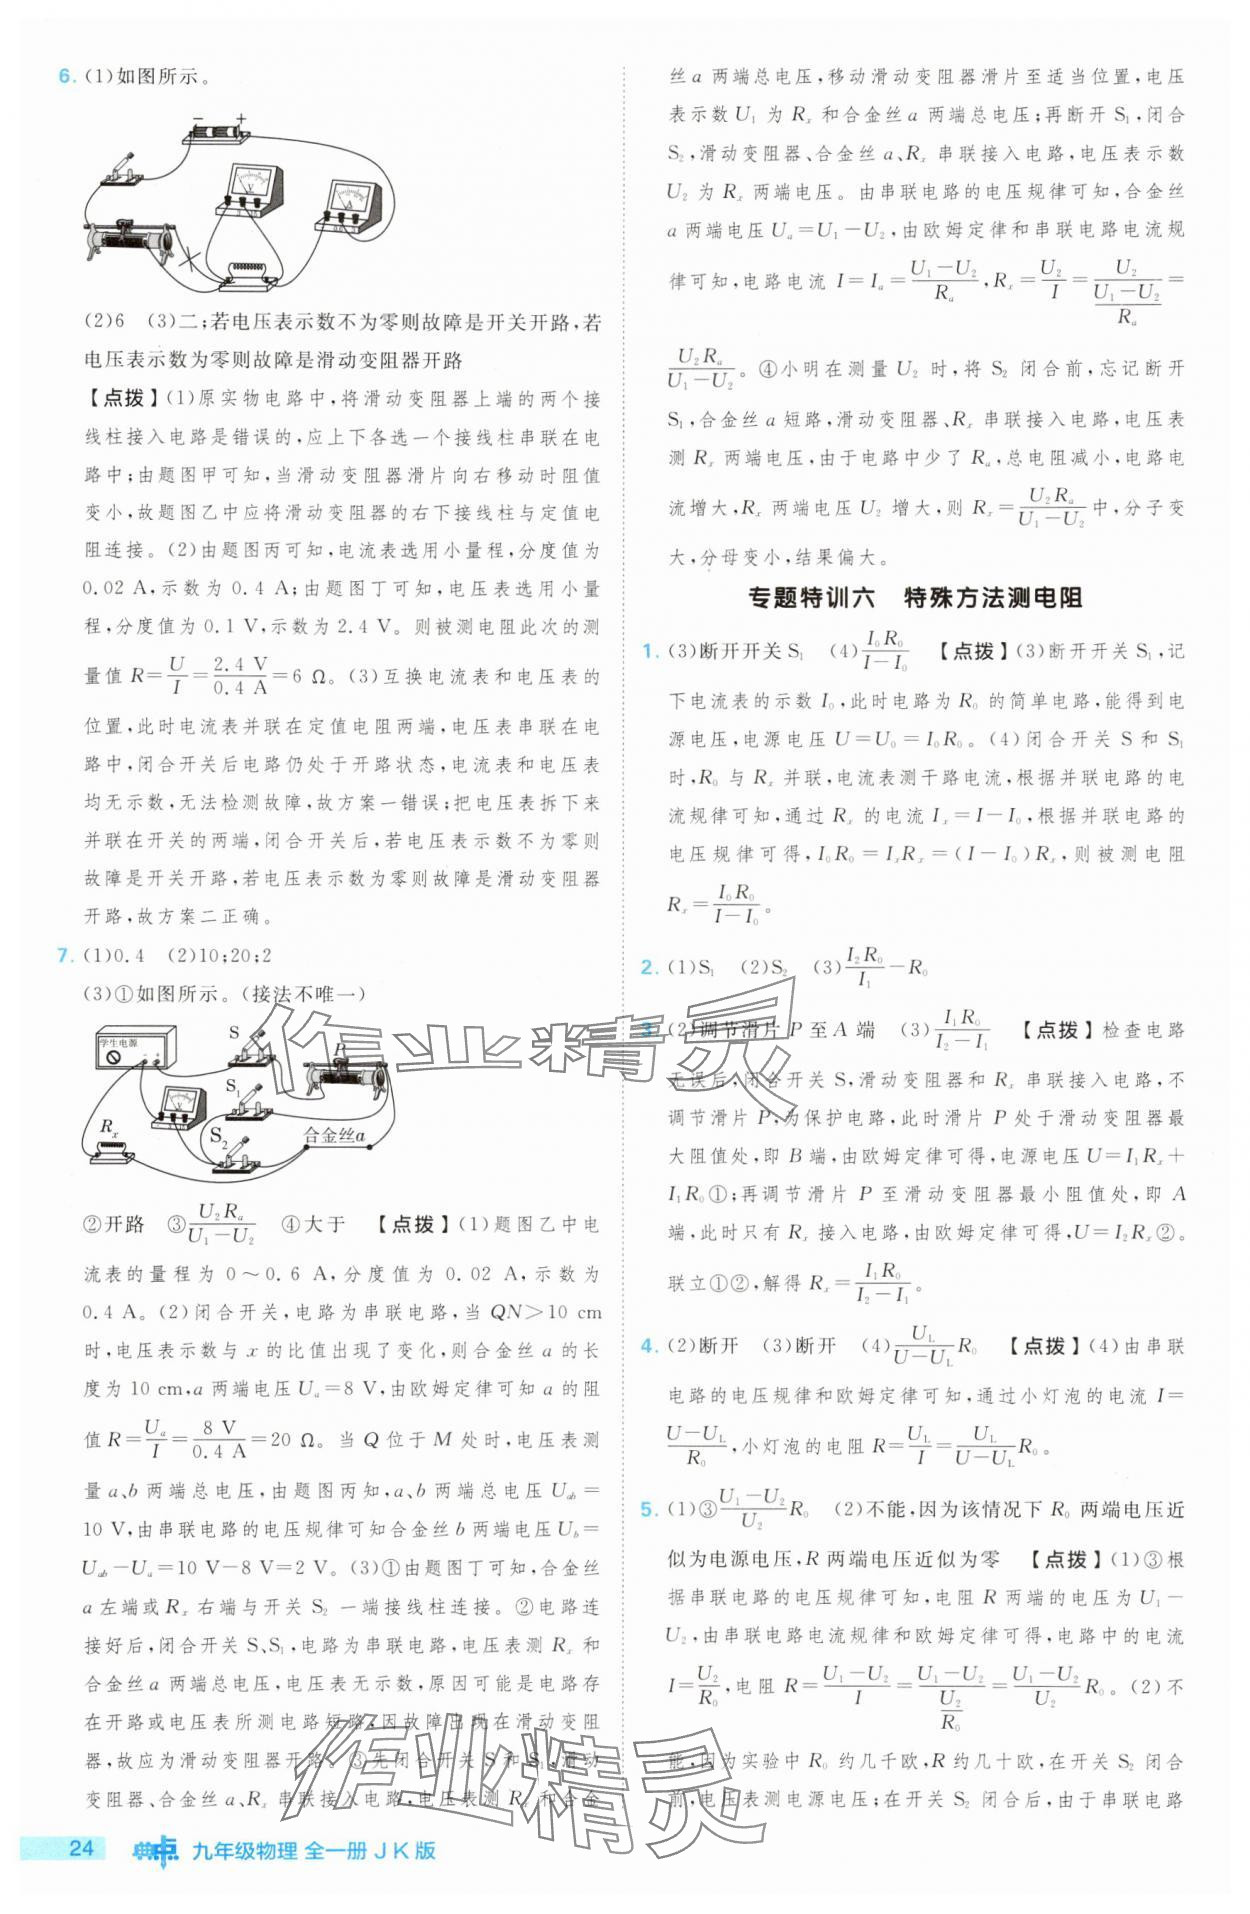 6. (1)如图所示。
− +
V
A
(2)6 (3)二;若电压表示数不为零则故障是开关开路,若
电压表示数为零则故障是滑动变阻器开路
【点拨】(1)原实物电路中,将滑动变阻器上端的两个接
线柱接入电路是错误的,应上下各选一个接线柱串联在电
路中;由题图甲可知,当滑动变阻器滑片向右移动时阻值
变小,故题图乙中应将滑动变阻器的右下接线柱与定值电
阻连接。(2)由题图丙可知,电流表选用小量程,分度值为
0.02 A,示数为 0.4 A;由题图丁可知,电压表选用小量
程,分度值为 0.1 V,示数为 2.4 V。则被测电阻此次的测
量值 R=U/I=2.4 V/0.4 A=6 Ω。(3)互换电流表和电压表的
位置,此时电流表并联在定值电阻两端,电压表串联在电
路中,闭合开关后电路仍处于开路状态,电流表和电压表
均无示数,无法检测故障,故方案一错误;把电压表拆下来
并联在开关的两端,闭合开关后,若电压表示数不为零则
故障是开关开路,若电压表示数为零则故障是滑动变阻器
开路,故方案二正确。
7. (1)0.4 (2)10;20;2
(3)①如图所示。(接法不唯一)
学生电源
S
P
S₁
S₂
Rₓ
合金丝a
②开路 ③U₂Rₐ/(U₁−U₂) ④大于 【点拨】(1)题图乙中电
流表的量程为 0～0.6 A,分度值为 0.02 A,示数为
0.4 A。(2)闭合开关,电路为串联电路,当 QN>10 cm
时,电压表示数与 x 的比值出现了变化,则合金丝 a 的长
度为 10 cm,a 两端电压 Uₐ=8 V,由欧姆定律可知 a 的阻
值 R=Uₐ/I=8 V/0.4 A=20 Ω。当 Q 位于 M 处时,电压表测
量 a、b 两端总电压,由题图丙知,a、b 两端总电压 U_ab=
10 V,由串联电路的电压规律可知合金丝 b 两端电压 U_b=
U_ab−Uₐ=10 V−8 V=2 V。(3)①由题图丁可知,合金丝
a 左端或 Rₓ 右端与开关 S₂ 一端接线柱连接。②电路连
接好后,闭合开关 S、S₁,电路为串联电路,电压表测 Rₓ 和
合金丝 a 两端总电压,电压表无示数,原因可能是电路存
在开路或电压表所测电路短路,因故障出现在滑动变阻
器,故应为滑动变阻器开路。③先闭合开关 S 和 S₁,滑动
变阻器、合金丝 a、Rₓ 串联接入电路,电压表测 Rₓ 和合金
丝 a 两端总电压,移动滑动变阻器滑片至适当位置,电压
表示数 U₁ 为 Rₓ 和合金丝 a 两端总电压;再断开 S₁,闭合
S₂,滑动变阻器、合金丝 a、Rₓ 串联接入电路,电压表示数
U₂ 为 Rₓ 两端电压。由串联电路的电压规律可知,合金丝
a 两端电压 Uₐ=U₁−U₂,由欧姆定律和串联电路电流规
律可知,电路电流 I=Iₐ=(U₁−U₂)/Rₐ,Rₓ=U₂/I=U₂/((U₁−U₂)/Rₐ)=
U₂Rₐ/(U₁−U₂)。④小明在测量 U₂ 时,将 S₂ 闭合前,忘记断开
S₁,合金丝 a 短路,滑动变阻器、Rₓ 串联接入电路,电压表
测 Rₓ 两端电压,由于电路中少了 Rₐ,总电阻减小,电路电
流增大,Rₓ 两端电压 U₂ 增大,则 Rₓ=U₂Rₐ/(U₁−U₂)中,分子变
大,分母变小,结果偏大。
专题特训六 特殊方法测电阻
1. (3)断开开关 S₁ (4)I₀R₀/(I−I₀) 【点拨】(3)断开开关 S₁,记
下电流表的示数 I₀,此时电路为 R₀ 的简单电路,能得到电
源电压,电源电压 U=U₀=I₀R₀。(4)闭合开关 S 和 S₁
时,R₀ 与 Rₓ 并联,电流表测干路电流,根据并联电路的电
流规律可知,通过 Rₓ 的电流 Iₓ=I−I₀,根据并联电路的
电压规律可得,I₀R₀=IₓRₓ=(I−I₀)Rₓ,则被测电阻
Rₓ=I₀R₀/(I−I₀)。
2. (1)S₁ (2)S₂ (3)I₂R₀/I₁−R₀
3. (2)调节滑片 P 至 A 端 (3)I₁R₀/(I₂−I₁) 【点拨】检查电路
无误后,闭合开关 S,滑动变阻器和 Rₓ 串联接入电路,不
调节滑片 P,为保护电路,此时滑片 P 处于滑动变阻器最
大阻值处,即 B 端,由欧姆定律可得,电源电压 U=I₁Rₓ+
I₁R₀①;再调节滑片 P 至滑动变阻器最小阻值处,即 A
端,此时只有 Rₓ 接入电路,由欧姆定律可得,U=I₂Rₓ②。
联立①②,解得 Rₓ=I₁R₀/(I₂−I₁)。
4. (2)断开 (3)断开 (4)U_L/(U−U_L)R₀ 【点拨】(4)由串联
电路的电压规律和欧姆定律可知,通过小灯泡的电流 I=
(U−U_L)/R₀,小灯泡的电阻 R=U_L/I=U_L/(U−U_L)R₀。
5. (1)③(U₁−U₂)/U₂R₀ (2)不能,因为该情况下 R₀ 两端电压近
似为电源电压,R 两端电压近似为零 【点拨】(1)③根
据串联电路的电压规律可知,电阻 R 两端的电压为 U₁−
U₂,由串联电路电流规律和欧姆定律可得,电路中的电流
I=U₂/R₀,电阻 R=(U₁−U₂)/I=(U₁−U₂)/(U₂/R₀)=(U₁−U₂)/U₂R₀。(2)不
能,因为实验中 R₀ 约几千欧,R 约几十欧,在开关 S₂ 闭合
前,电压表测电源电压;在开关 S₂ 闭合后,由于串联电路
作业精灵
作业精灵
24 典中点 九年级物理 全一册 JK版